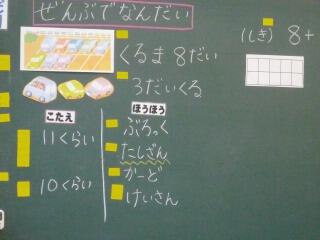 ぜんぶでなんだい
くるま 8だい
3だいくる
(しき) 8+
こたえ
11くらい
10くらい
ほうほう
ぶろっく
たしざん
かーど
けいさん